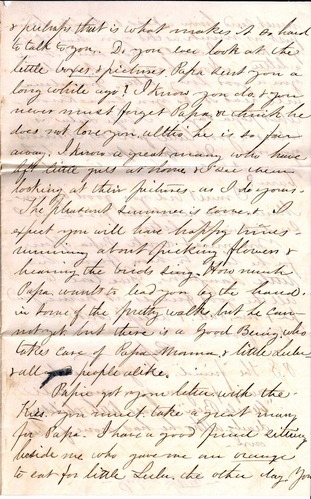 & perhaps that is what makes it so hard
to talk to you. Do you ever look at the
little boxes & pictures Papa sent you a
long while ago? I know you do, & you
never must forget Papa, or think he
does not love you, altho' he is so far
away. I know a great many who have
left little girls at home, & I see them
looking at their pictures as I do yours.
The pleasant summer is come, & I
expect you will have happy times
running about picking flowers &
hearing the birds sing. How much
Papa wants to lead you by the hand
in some of the pretty walks, but he can
not yet, but there is a Good Being who
takes care of Papa Mama, & little Lulu
& all people alike.
Papa got your letter with the
Kiss. You must take a great many
for Papa. I have a good friend sitting
beside me who gave me an orange
to eat for little Lulu, the other day. You